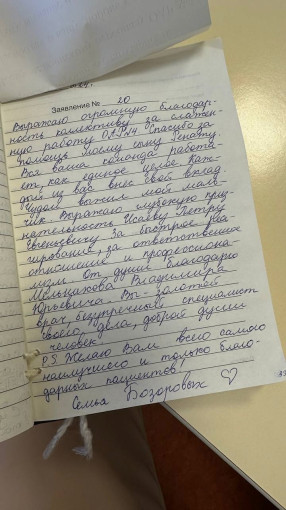 Заявление № 20
Выражаю огромную благодар-
ность коллективу за слажен-
ную работу ОАРИН Спасибо за
помощь моему сыну Ренату.
Вся ваша команда работа-
ет, как единое целое Каж-
дый из вас внес свой вклад
Чудом выжил мой маль-
чик Выражаю глубокую приз-
нательность Исаеву Петру
Евгеньевичу За быстрое реа-
гирование, за ответственное
отношение и профессиона-
лизм От души Благодарю
Мельчакова Владимира
Юрьевича Вы золотой
врач, безупречный специалист
своего дела, доброй души
человек
P.S Желаю Вам всего самого
наилучшего и только благо-
дарных пациентов!
Семья Бозоровых ♡